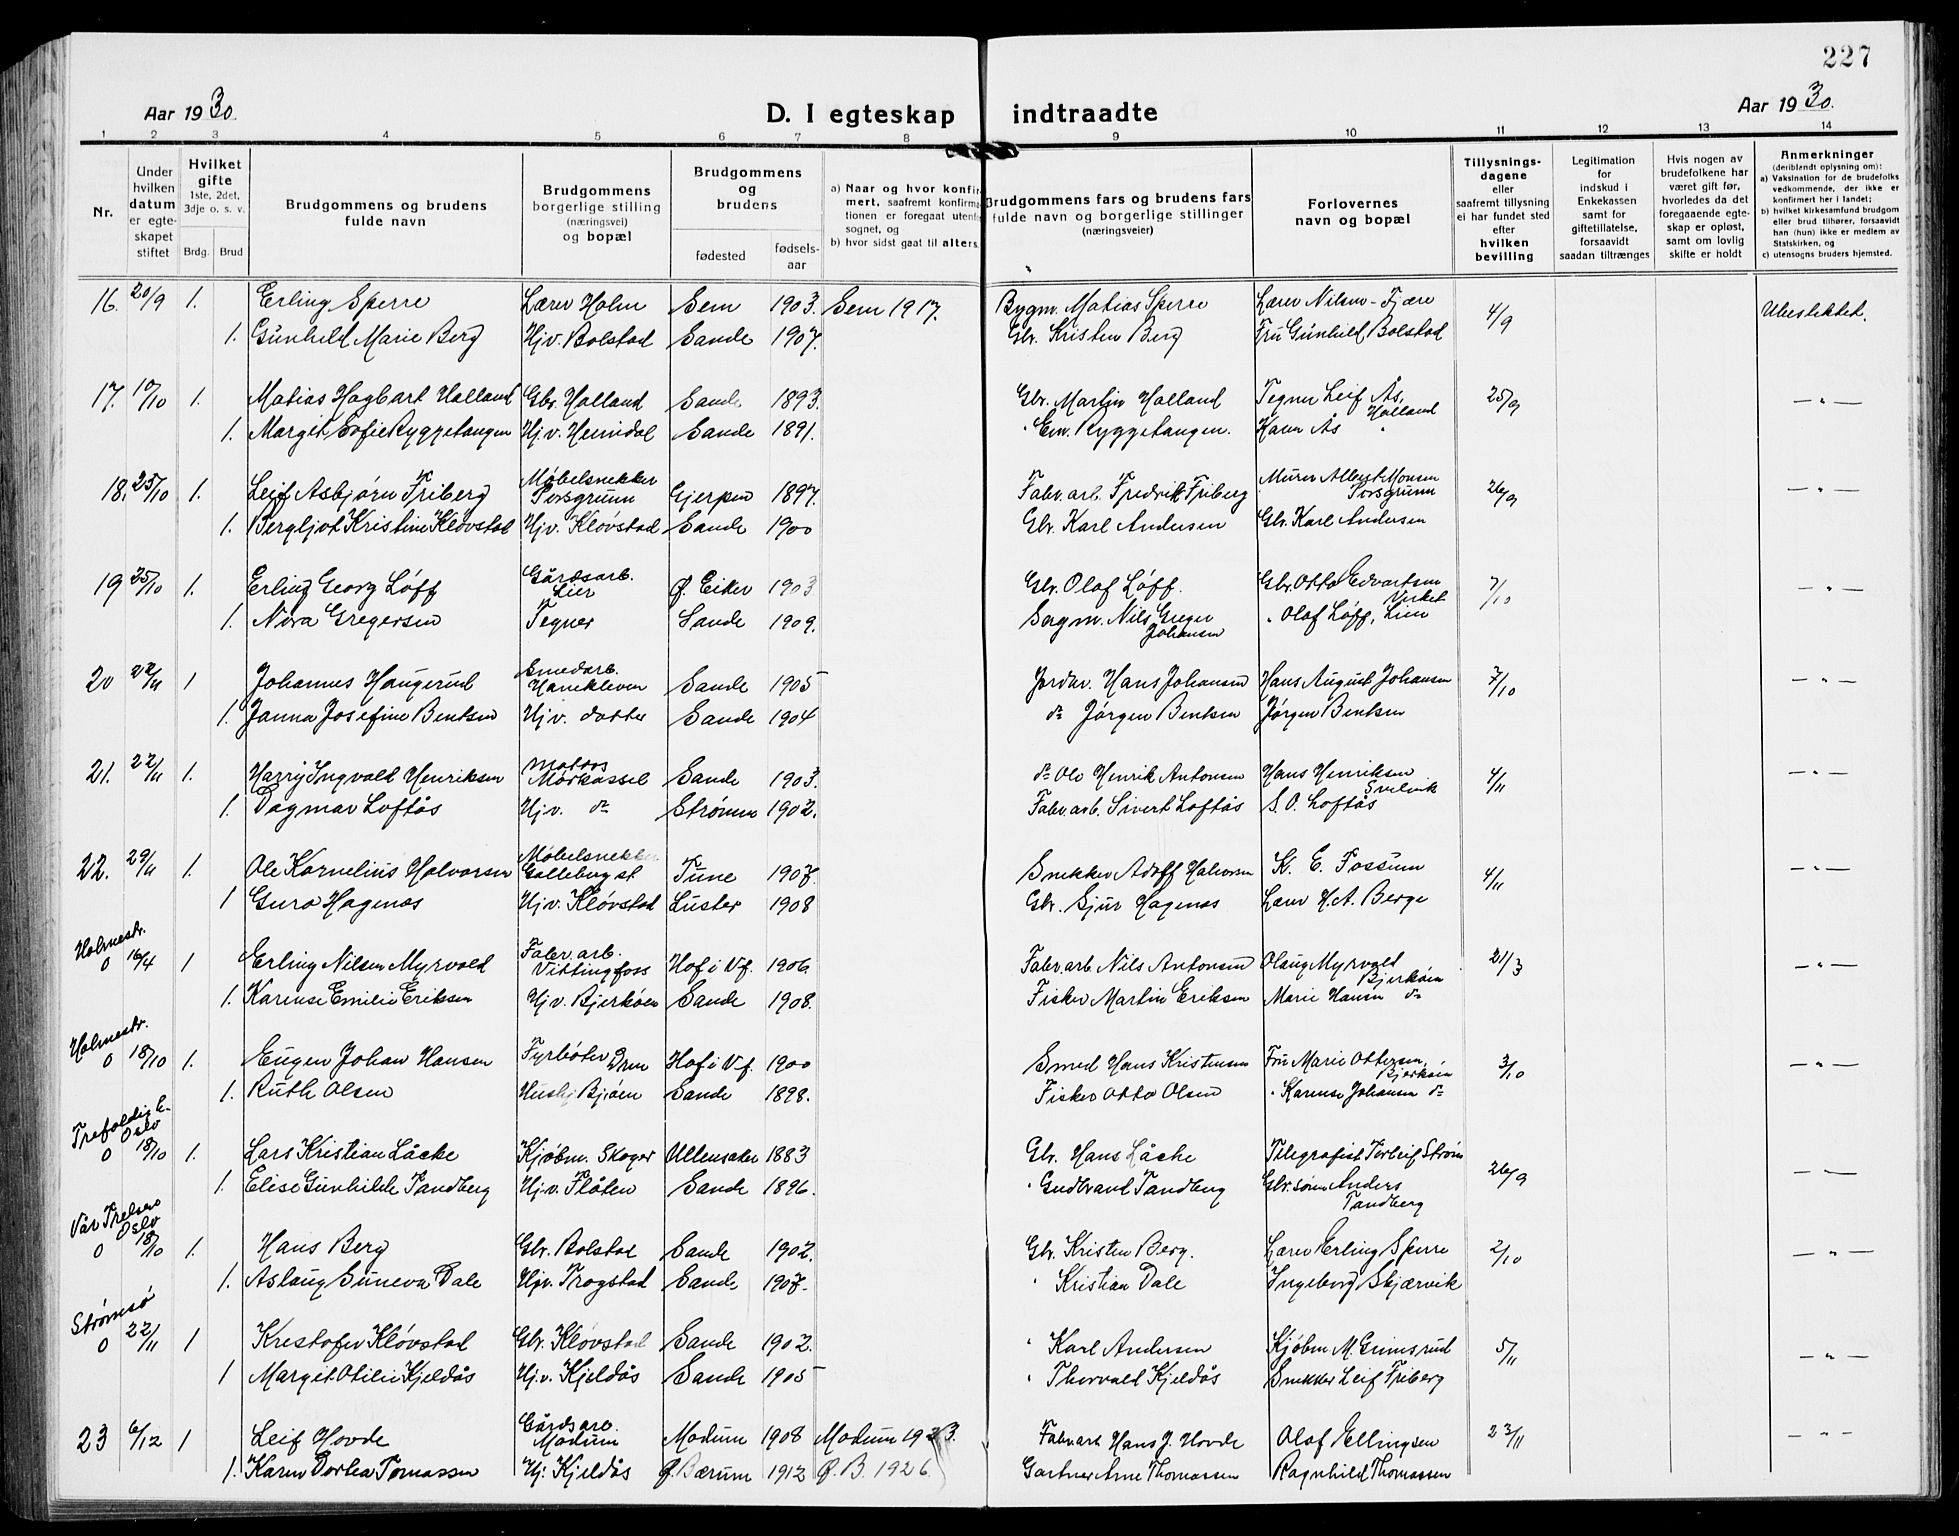 227
Aar 1930.
D. I egteskap indtraadte
Aar 1930.
1 2 3 4 5 6 7 8 9 10 11 12 13 14
Nr.
Under hvilken datum er egteskapet stiftet
Hvilket gifte 1ste, 2det, 3dje o. s. v.
Brdg. Brud
Brudgommens og brudens fulde navn
Brudgommens borgerlige stilling (næringsvei) og bopæl
Brudgommens og brudens
fødested
fødsels-aar
a) Naar og hvor konfirmert, saafremt konfirmationen er foregaat utenfor sognet, og
b) hvor sidst gaat til alters.
Brudgommens fars og brudens fars fulde navn og borgerlige stillinger (næringsveier)
Forlovernes navn og bopæl
Tillysningsdagene eller saafremt tillysning ei har fundet sted efter hvilken bevilling
Legitimation for indskud i Enkekassen samt for giftetillatelse, forsaavidt saadan tiltrænges
Hvis nogen av brudefolkene har været gift før, hvorledes da det foregaaende egteskap er opløst, samt om lovlig skifte er holdt
Anmerkninger (deriblandt oplysning om):
a) Vaksination for de brudefolks vedkommende, der ikke er konfirmert her i landet;
b) hvilket kirkesamfund brudgom eller brud tilhører, forsaavidt han (hun) ikke er medlem av Statskirken, og
c) utensogns bruders hjemsted.
16. 20/9 1. Erling Sperre Lærer Holm Sem 1903. Sem 1917. Bygm. Matias Sperre Lærer Nilsen - Fjære 4/9 Ubeslektet.
1. Gunhild Marie Berg Hjv. Bolstad Sande 1907. Gbr. Kristen Berg Fru Gunhild Bolstad
17. 10/10 1. Matias Hagbart Holland Gbr. Holland Sande 1893. Gbr. Martin Holland Tegner Leif Ås, Holland 25/9 — " —
1. Margit Sofie Ryggetangen Hjv. Heimdal Sande 1891. " Em. Ryggetangen. Karen Ås "
18. 25/10 1. Leif Asbjørn Friberg Møbelsnekker Porsgrunn Gjerpen 1897. Fabr. arb. Fredrik Friberg Murer Albert Monsen Porsgrunn 26/9 — " —
1. Bergljot Kristine Kløvstad Hjv. Kløvstad Sande 1900 Gbr. Karl Andersen Gbr. Karl Andersen
19 25/10 1. Erling Georg Løff Gårdsarb. Lier Ø. Eiker 1903 Gbr. Olaf Løff. Gbr. Otto Edvartsen Virket 7/10 — " —
1. Nora Gregersen Tegner Sande 1909. Sagm. Nils Greger Johansen " Olaf Løff, Lier
20 22/11 1 Johannes Haugerud Smedarb. Hanekleven Sande 1905 Jordbr. Hans Johansen Hans August Johansen 7/10 — " —
1. Janna Josefine Bentsen Hjv. datter Sande 1904 do Jørgen Bentsen Jørgen Bentsen
21. 22/11 1. Harry Ingvald Henriksen Matros Mørkassel Sande 1903. do Ole Henrik Antonsen Hans Henriksen Svelvik 4/11 — " —
1. Dagmar Loftås Hjv. do Strømm 1902. Fabr. arb. Sivert Loftås S. O. Loftås
22. 29/11 1. Ole Kornelius Halvorsen Møbelsnekker Galleberg st. Tune 1907. Snekker Adolf Halvorsen K. E. Fossum 4/11 — " —
1 Guro Hagenos Hjv. Kløvstad Luster 1908 Gbr. Sjur Hagenos Lærer H. A. Berge
Holmestr. 0 16/4 1 Erling Nilsen Myrvold Fabr. arb. Vittingfoss Hof i Vf. 1906. Fabr. arb. Nils Antonsen Olaug Myrvold Bjerkøen 21/3 — " —
1. Karense Emilie Eriksen Hjv. Bjerkøen Sande 1908. Fisker Martin Eriksen Marie Hansen do
Holmestr. 0 18/10 1. Eugen Johan Hansen Fyrbøter Drm Hof i Vf. 1900 Smed Hans Kristensen Fru Marie Ottersen, Bjerkøen 3/10 — " —
1. Ruth Olsen Hushj Bjrøen Sande 1898. Fisker Otto Olsen " Karense Johansen do
Trefoldigh. Oslo 0 18/10 1. Lars Kristian Låcke Kjøbm. Skoger Ullensaker 1883 Gbr. Hans Låcke Telegrafist Torleif Strøm 26/9 — " —
1. Elise Gunhilde Tandberg Hjv. Flåten Sande 1896. " Gudbrand Tandberg Gbr. sønn Anders Tandberg
Vår Frelsers Oslo 0 18/10 1. Hans Berg Gbr. Bolstad Sande 1902. Gbr. Kristen Berg. Lærer Erling Sperre 2/10 — " —
1. Aslaug Suneva Dale Hjv. Trogstad Sande 1907. " Kristian Dale Ingeborg Skjærvik
Strømsø 0 22/11 1 Kristofer Kløvstad Gbr. Kløvstad Sande 1902. " Karl Andersen Kjøbm M. Grimsrud 5/11 — " —
1 Margit Otilie Kjeldås Hjv. Kjeldås Sande 1905 " Thorvald Kjeldås Snekker Leif Friberg
23 6/12 1 Leif Hovde Gårdsarb. Modum Modum 1908 Modum 1923. Fabr. arb Hans J. Hovde Olaf Ellingsen 23/11 — " —
1. Karen Dortea Tomassen Hj. Kjeldås Ø. Bærum 1912 Ø. B. 1926 Gartner Arne Thomassen Ragnhild Thomassen